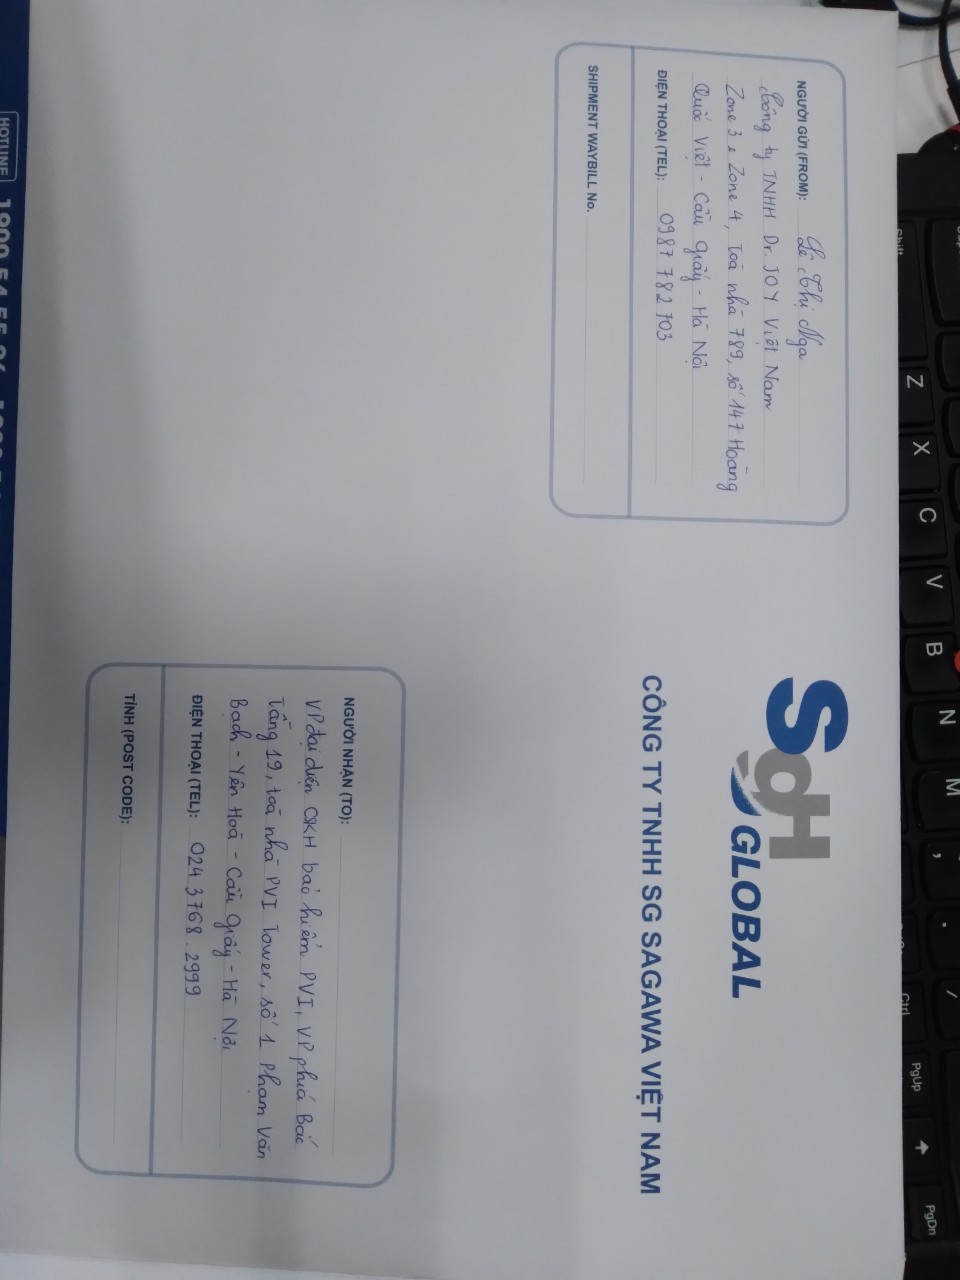 NGƯỜI GỬI (FROM): Lê Thị Nga
Công ty TNHH Dr. JOY Việt Nam
Zone 3 & Zone 4, Toà nhà 789, số 147 Hoàng
Quốc Việt - Cầu Giấy - Hà Nội
ĐIỆN THOẠI (TEL): 0987 782 703
SHIPMENT WAYBILL No.
SGH
GLOBAL
CÔNG TY TNHH SG SAGAWA VIỆT NAM
NGƯỜI NHẬN (TO):
VP đại diện QKH bảo hiểm PVI, VP phía Bắc
Tầng 19, toà nhà PVI Tower, số 1 Phạm Văn
Bạch - Yên Hoà - Cầu Giấy - Hà Nội
ĐIỆN THOẠI (TEL): 024 3768.2999
TỈNH (POST CODE):
HOTLINE 1900 54 55
Shift
Z
X
C
V
B
N
M
,
.
/
Ctrl
PgUp
PgDn